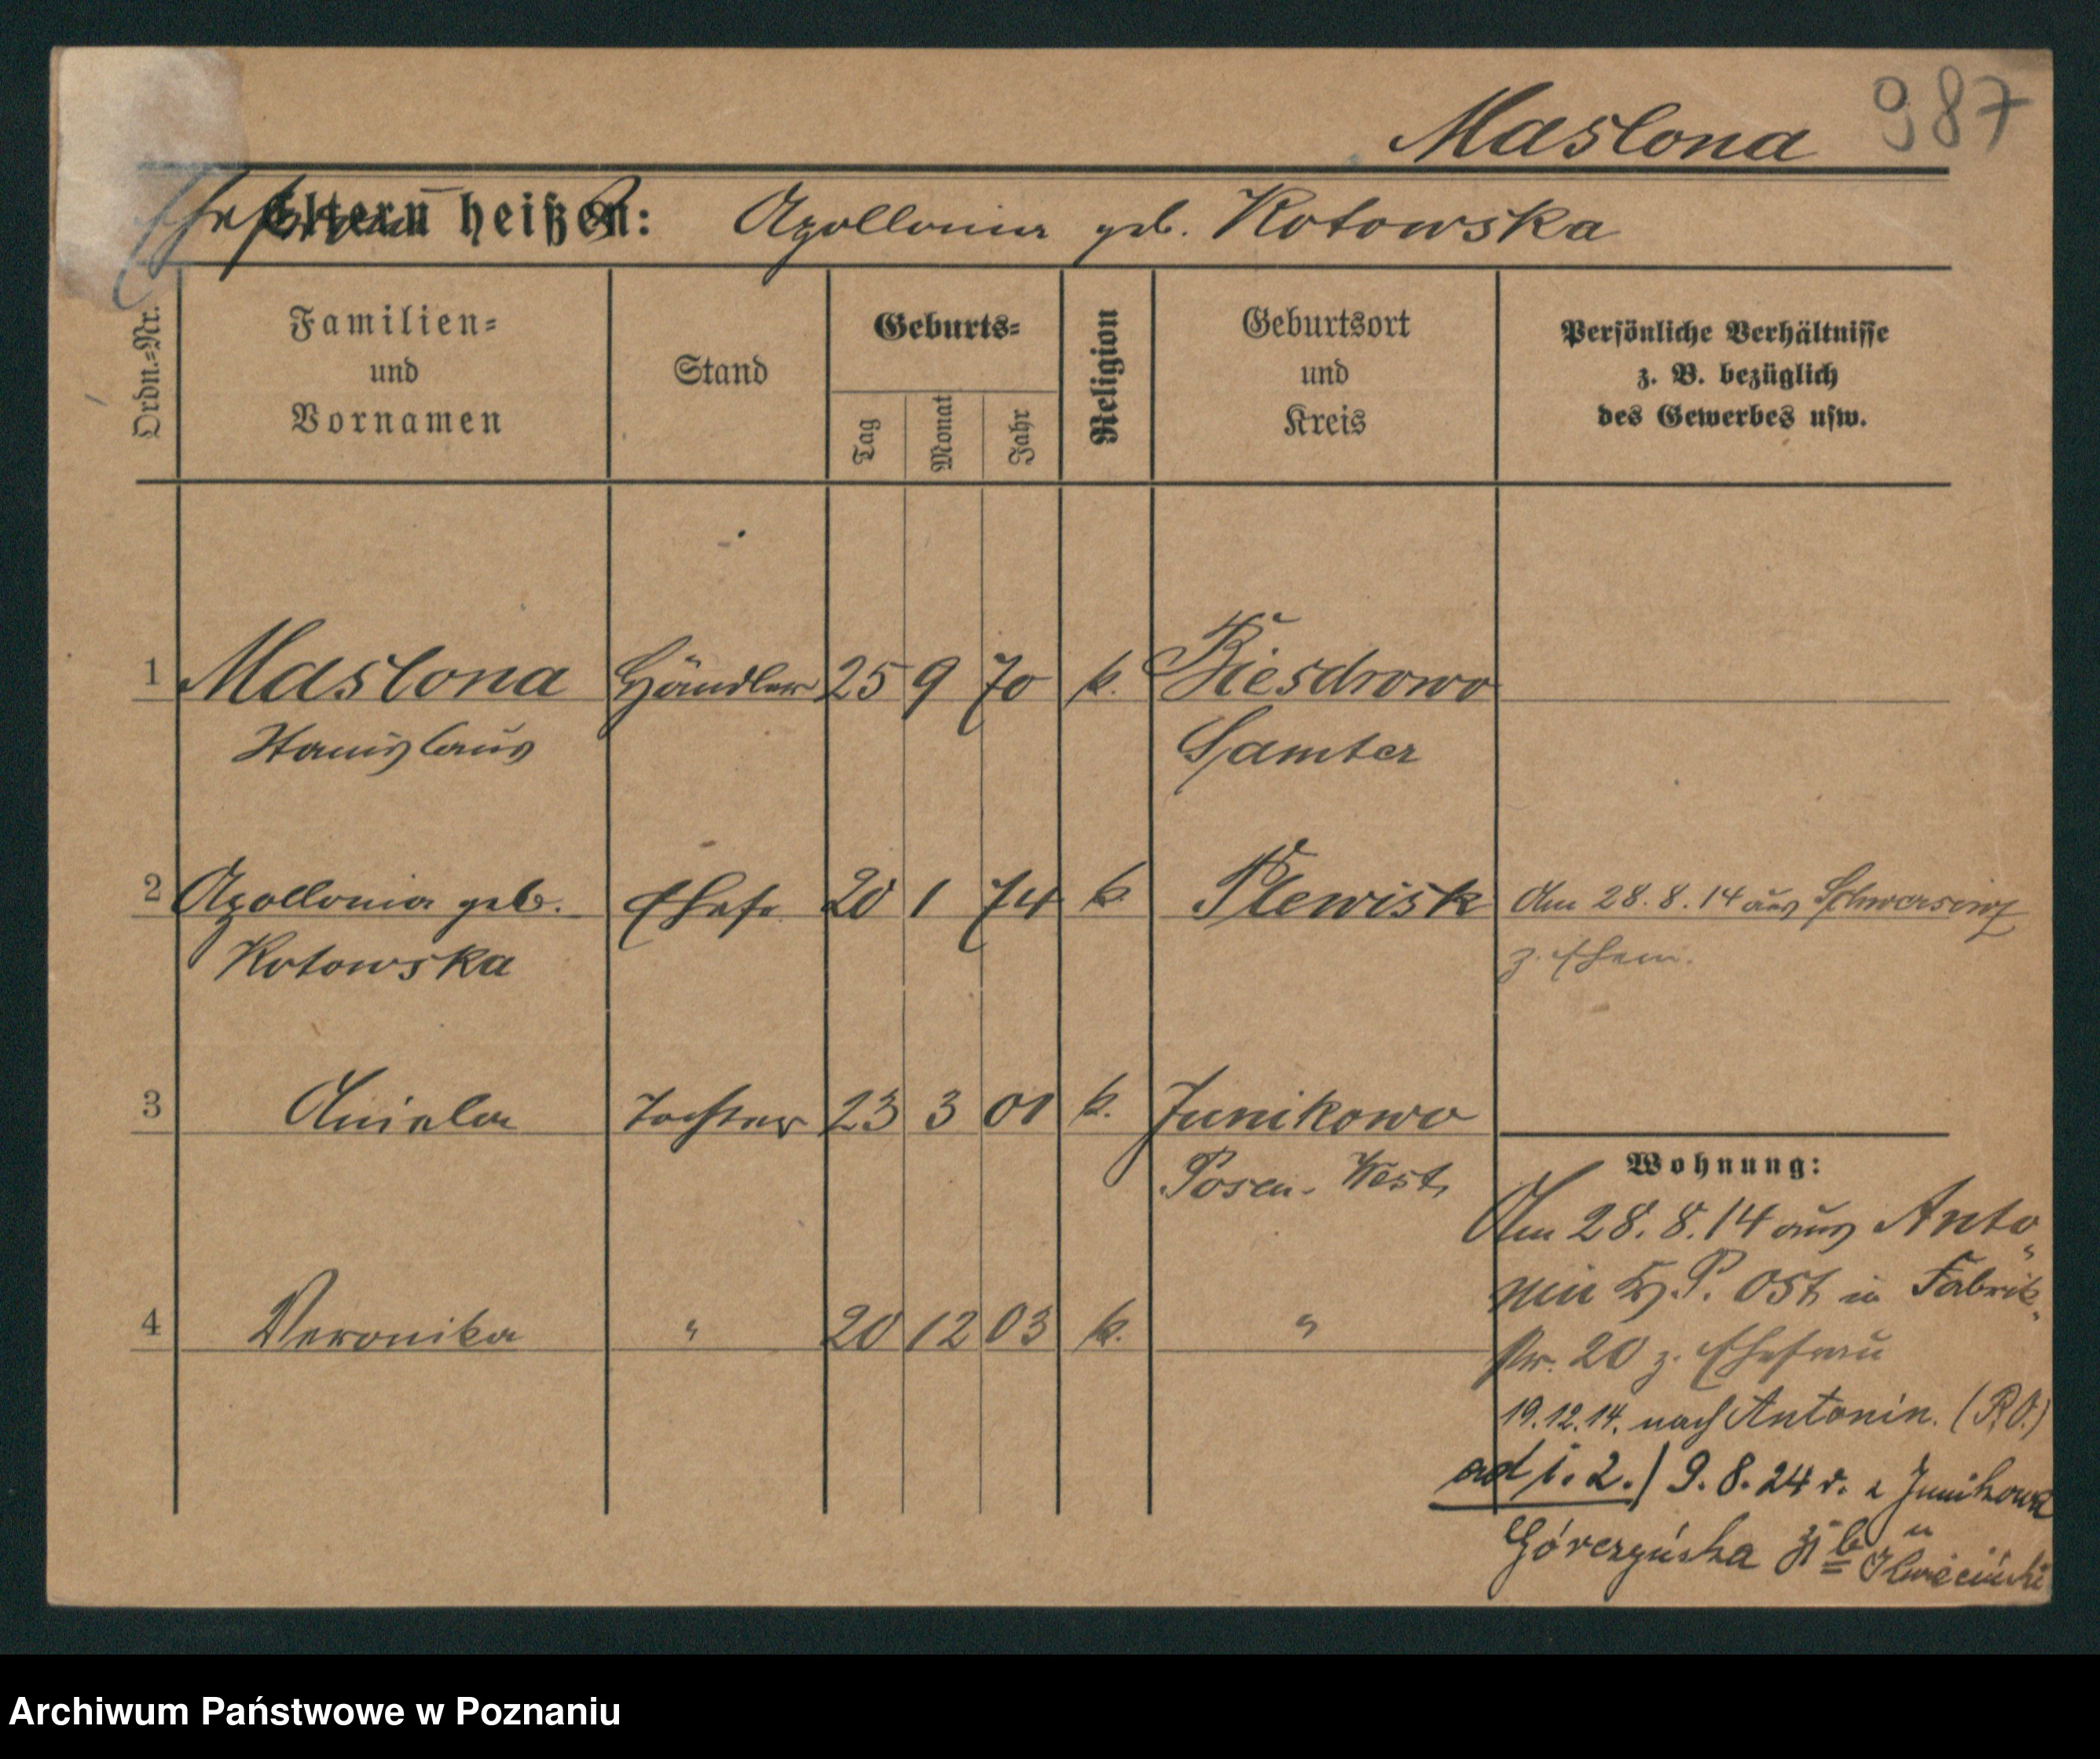 Maslona 987
Ehefrau
Eltern heißen: Apollonia geb. Kotowska
Ordn.-Nr.
Familien-
und
Vornamen
Stand
Geburts-
Tag
Monat
Jahr
Religion
Geburtsort
und
Kreis
Persönliche Verhältnisse
z. B. bezüglich
des Gewerbes usw.
1 Maslona Händler 25 9 70 k. Biesdrowo
Stanislaus Samter
2 Apollonia geb. Ehefr. 20 1 74 k. Plewisk Am 28.8.14 aus Schwersenz
Kotowska z. Ehem.
3 Aniela Tochter 23 3 01 k. Junikowo
Posen-West
Wohnung:
Am 28.8.14 aus Anto
nin Kr. P. Ost in Fabrik-
4 Veronika " 20 12 03 k. "
str. 20 z. Ehefrau
19.12.14. nach Antonin. (P.O.)
ad 1.2./ 9.8.24 v. Junikowa
Górczyńska